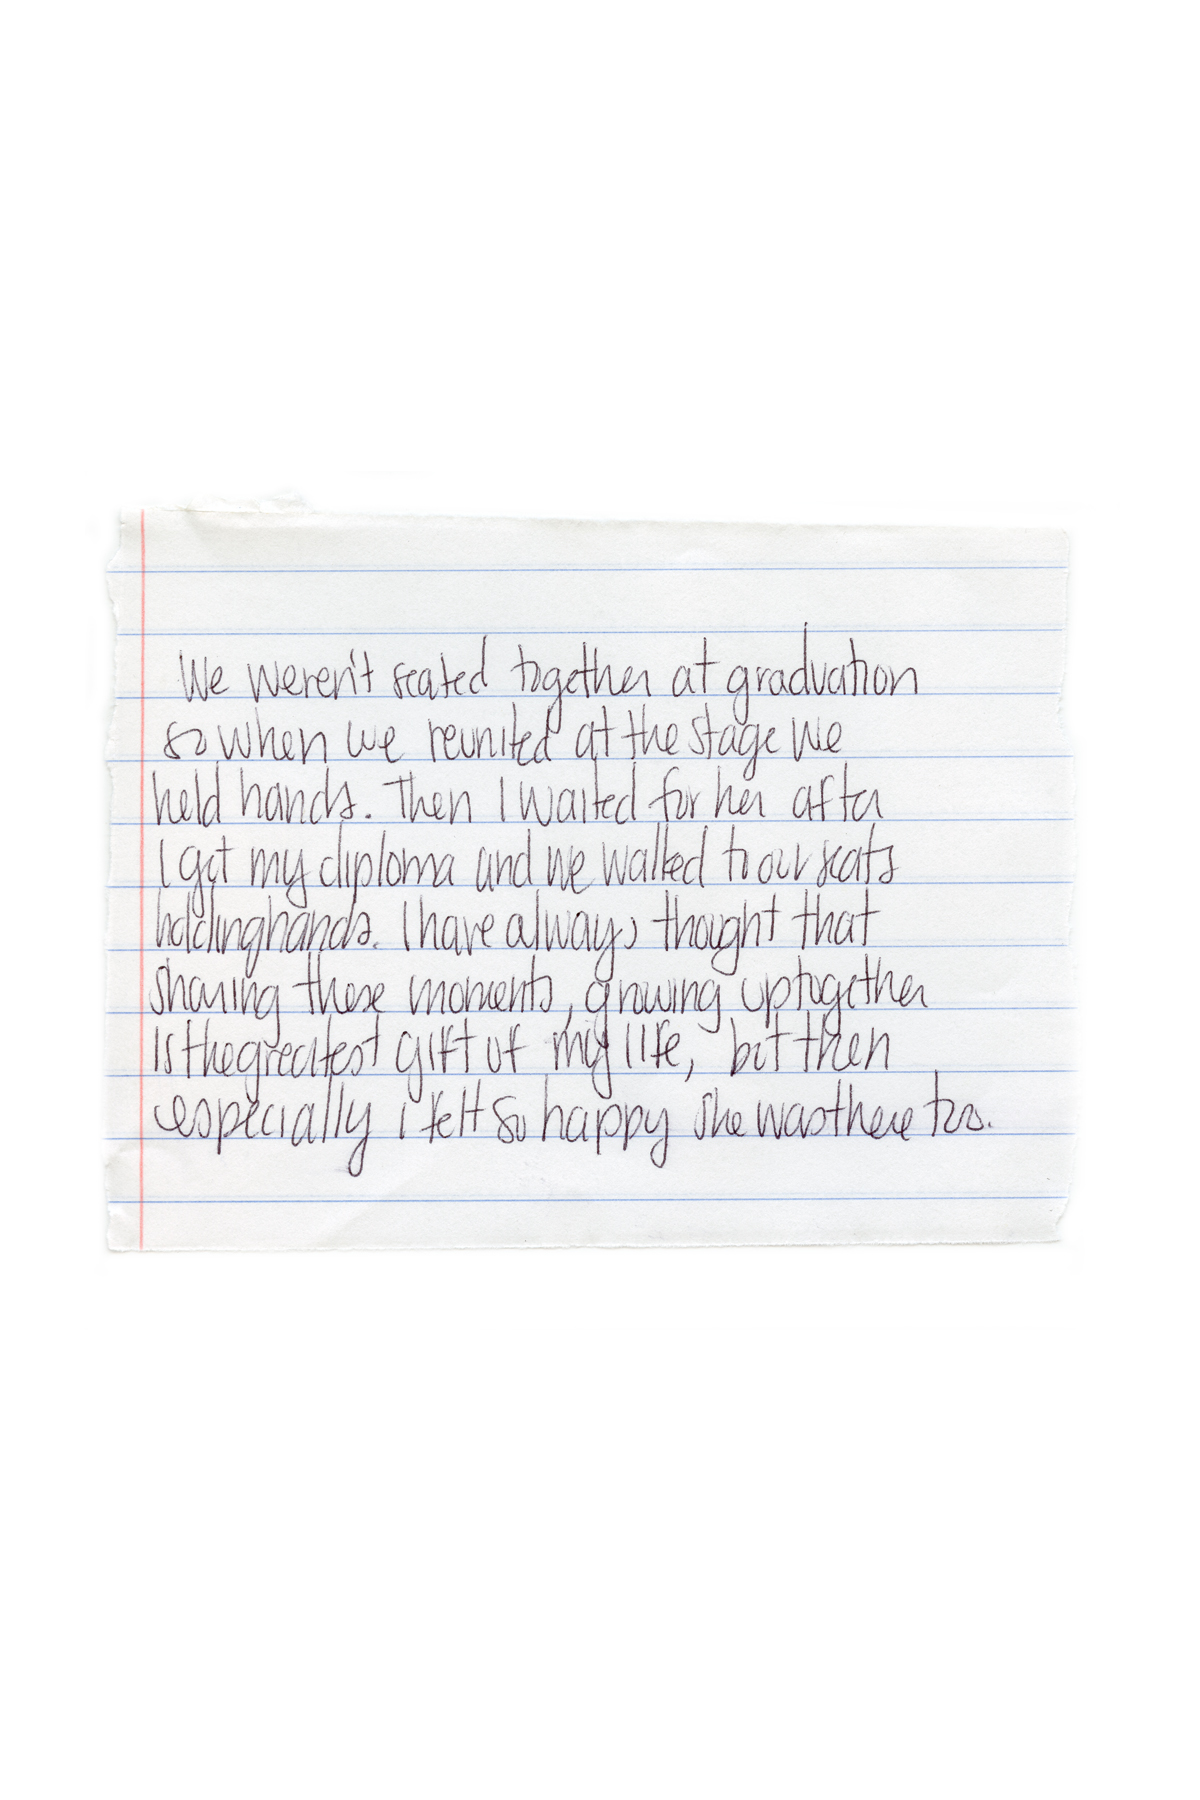 We weren't seated together at graduation
so when we reunited at the stage we
held hands. Then I waited for her after
I got my diploma and we walked to our seats
holding hands. I have always thought that
sharing these moments, growing up together
is the greatest gift of my life, but then
especially i felt so happy she was there too.